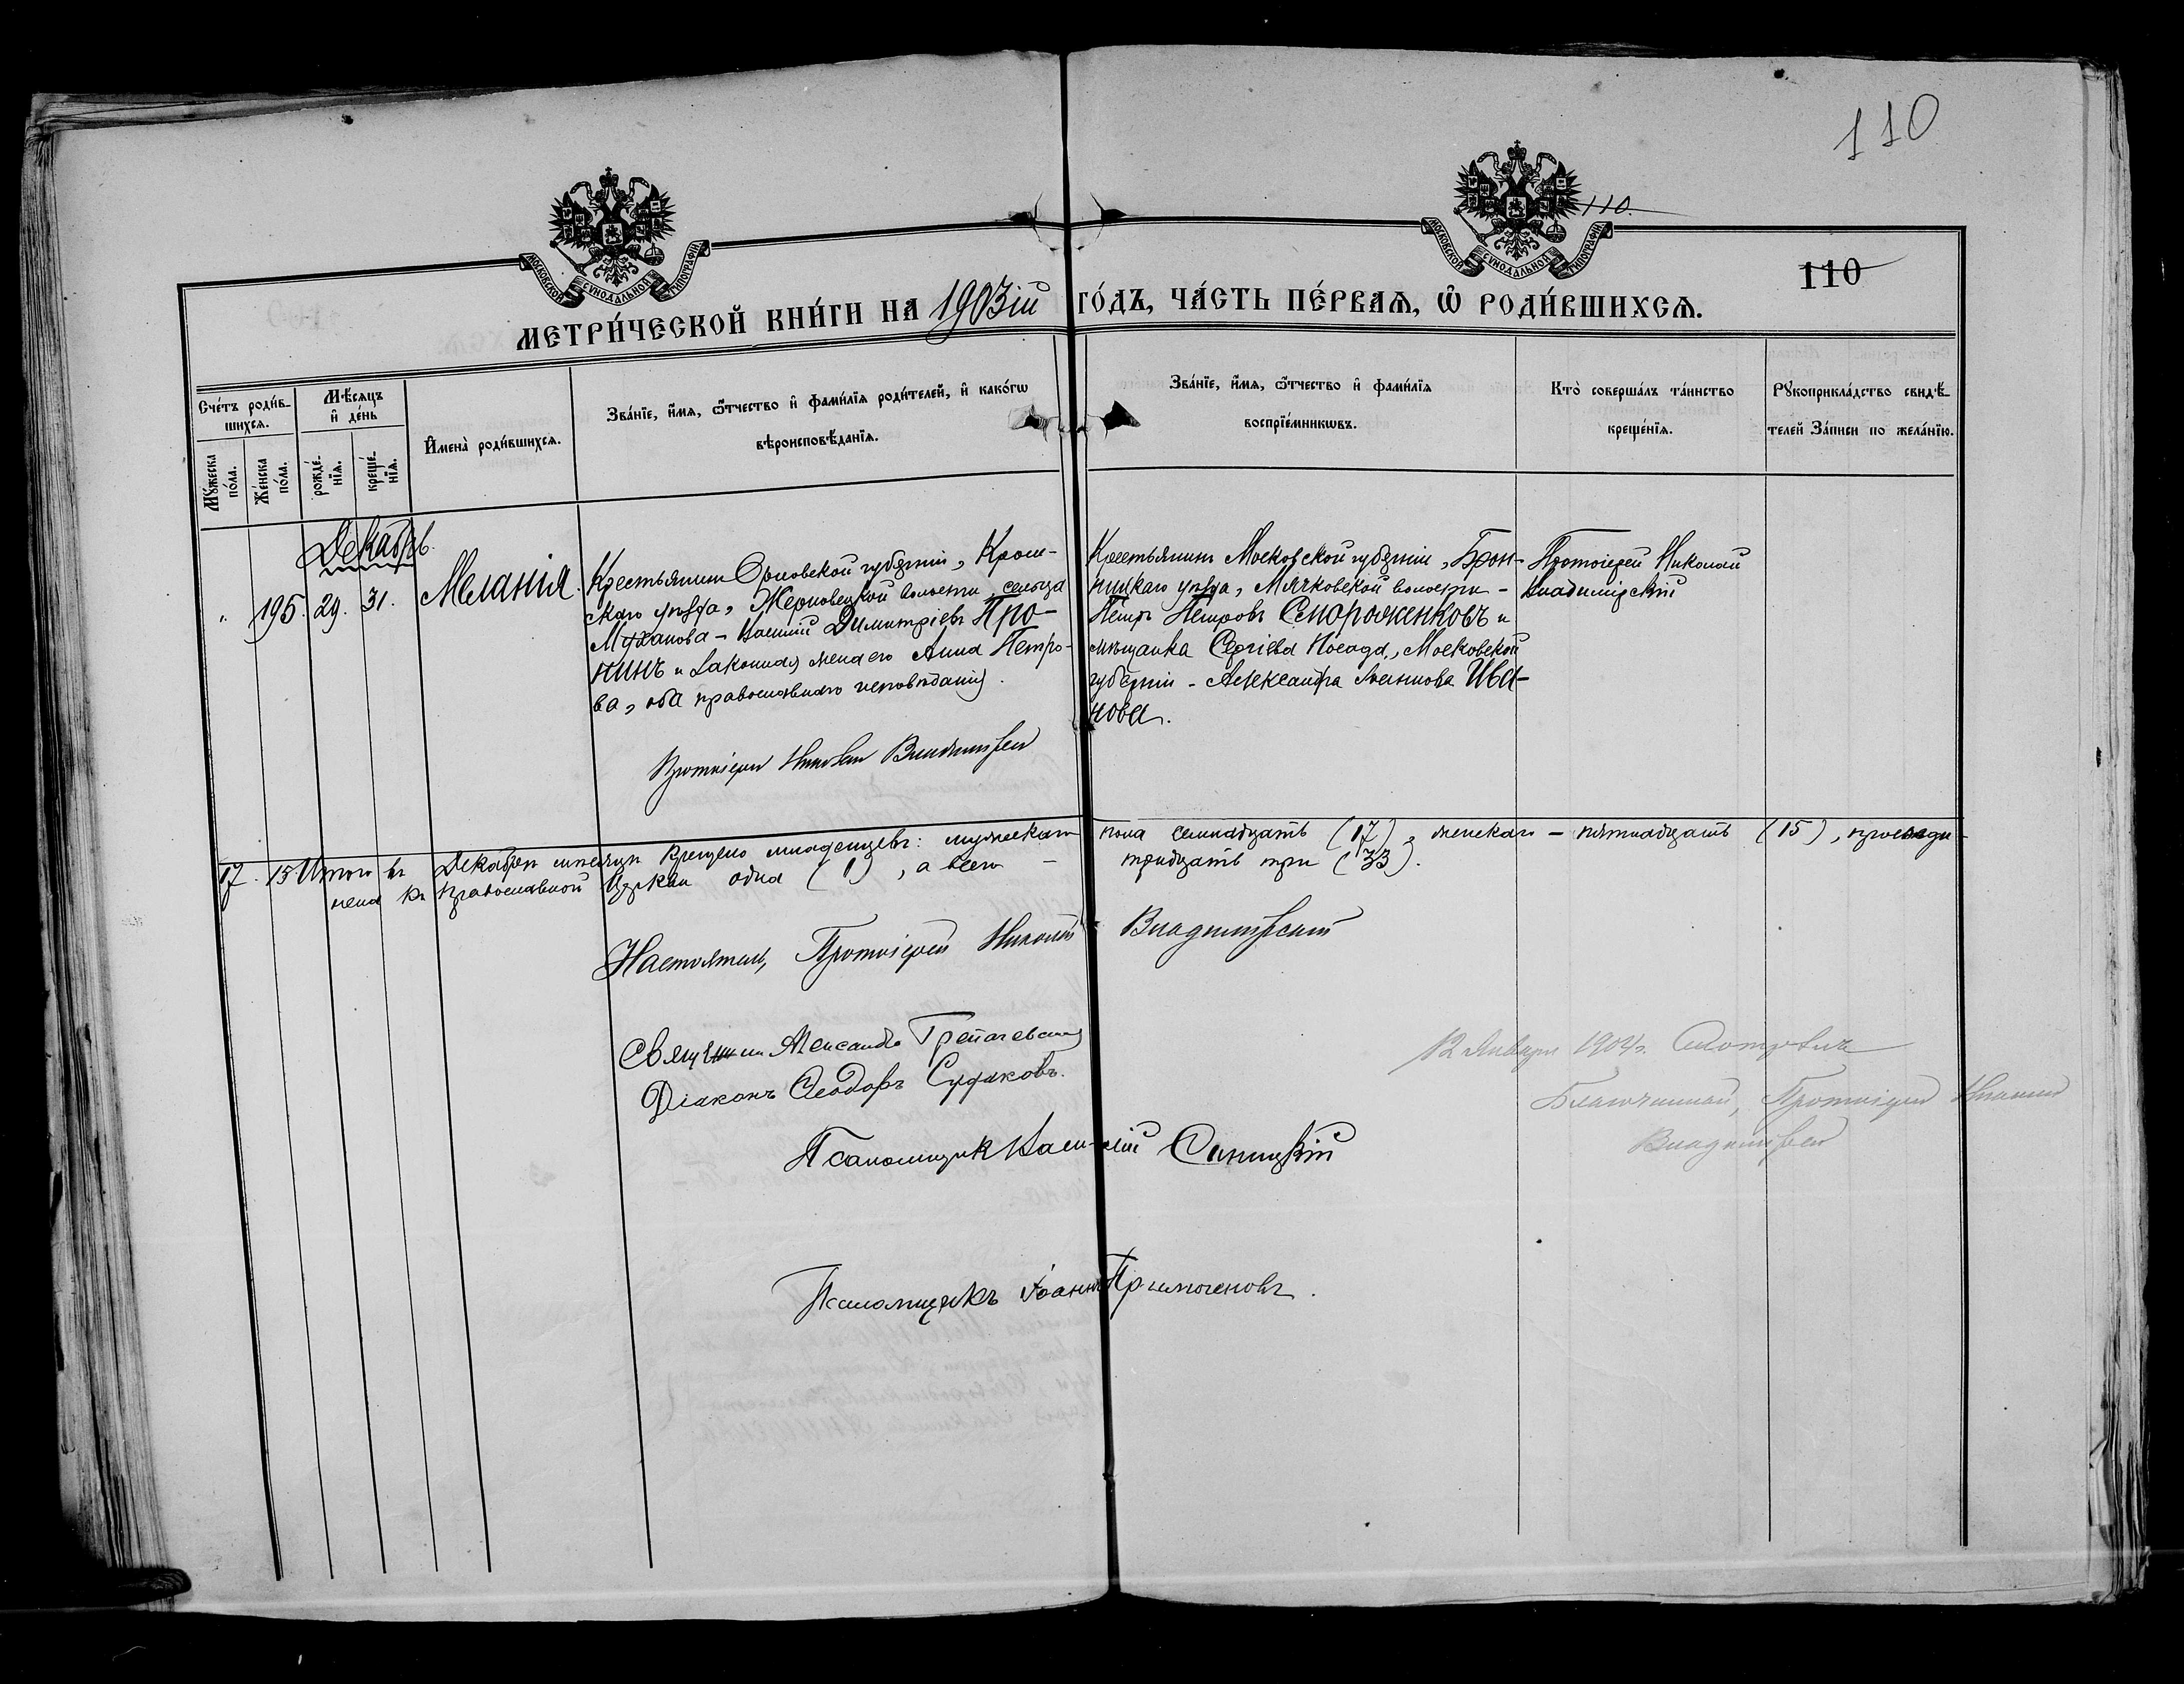 110
110.
110
МОСКОВСКОЙ СѴНОДАЛЬНОЙ ТИПОГРАФІИ
МОСКОВСКОЙ СѴНОДАЛЬНОЙ ТИПОГРАФІИ
МЕТРИ́ЧЕСКОЙ КНИ́ГИ НА 1903ій ГО́ДЪ, ЧА́СТЬ ПЕ́РВАѦ, Ѡ҆ РОДИ́ВШИХСѦ.
Сче́тъ роди́в-
шихсѧ.
Мѣ́сѧцъ
и҆ де́нь
Мꙋ́жеска
по́ла.
Же́нска
по́ла.
рожде́-
нїѧ.
креще́-
нїѧ.
И҆мена̀ роди́вшихсѧ.
Зва́нїе, и҆́мѧ, ѻ҆́тчество и҆ фами́лїѧ роди́телей, и҆ како́гѡ
вѣроисповѣ́данїѧ.
Зва́нїе, и҆́мѧ, ѻ҆́тчество и҆ фами́лїѧ
воспрїе́мникѡвъ.
Кто̀ соверша́лъ та́инство
креще́нїѧ.
Рꙋкоприкла́дство свидѣ́-
телей За́писи по жела́нїю.
Декабрь.
" 195. 29. 31. Меланія.
Крестьянинъ Орловской губерніи, Кром-
скаго уѣзда, Жерновецкой волости, сельца
Муханова – Василій Димитріевъ Про-
нинъ и законная жена его Анна Петро-
ва, оба православнаго исповѣданія.
Протоіерей Николай Владимірскій
Крестьянинъ Московской губерніи, Брон-
ницкаго уѣзда, Мячковской волости –
Петръ Петровъ Сторо́женковъ и
мѣщанка Сергіева Посада, Московской
губерніи – Александра Иванова Ива-
нова.
Протоіерей Николай
Владимірскій
17. 15. Итого въ Декабрѣ мѣсяцѣ крещено младенцевъ: мужескаго пола семнадцать (17), женскаго – пятнадцать (15), присоеди-
нена къ православной Церкви одна (1), а всего – тридцать три (33).
Настоятель, Протоіерей Николай Владимірскій
Священникъ Александръ
Діаконъ Ѳеодоръ Судаковъ.
Псаломщикъ Василій Синицкій
Псаломщикъ Іоаннъ
12 Января 1904 г. Смотрѣлъ
Благочинный, Протоіерей Николай
Владимірскій